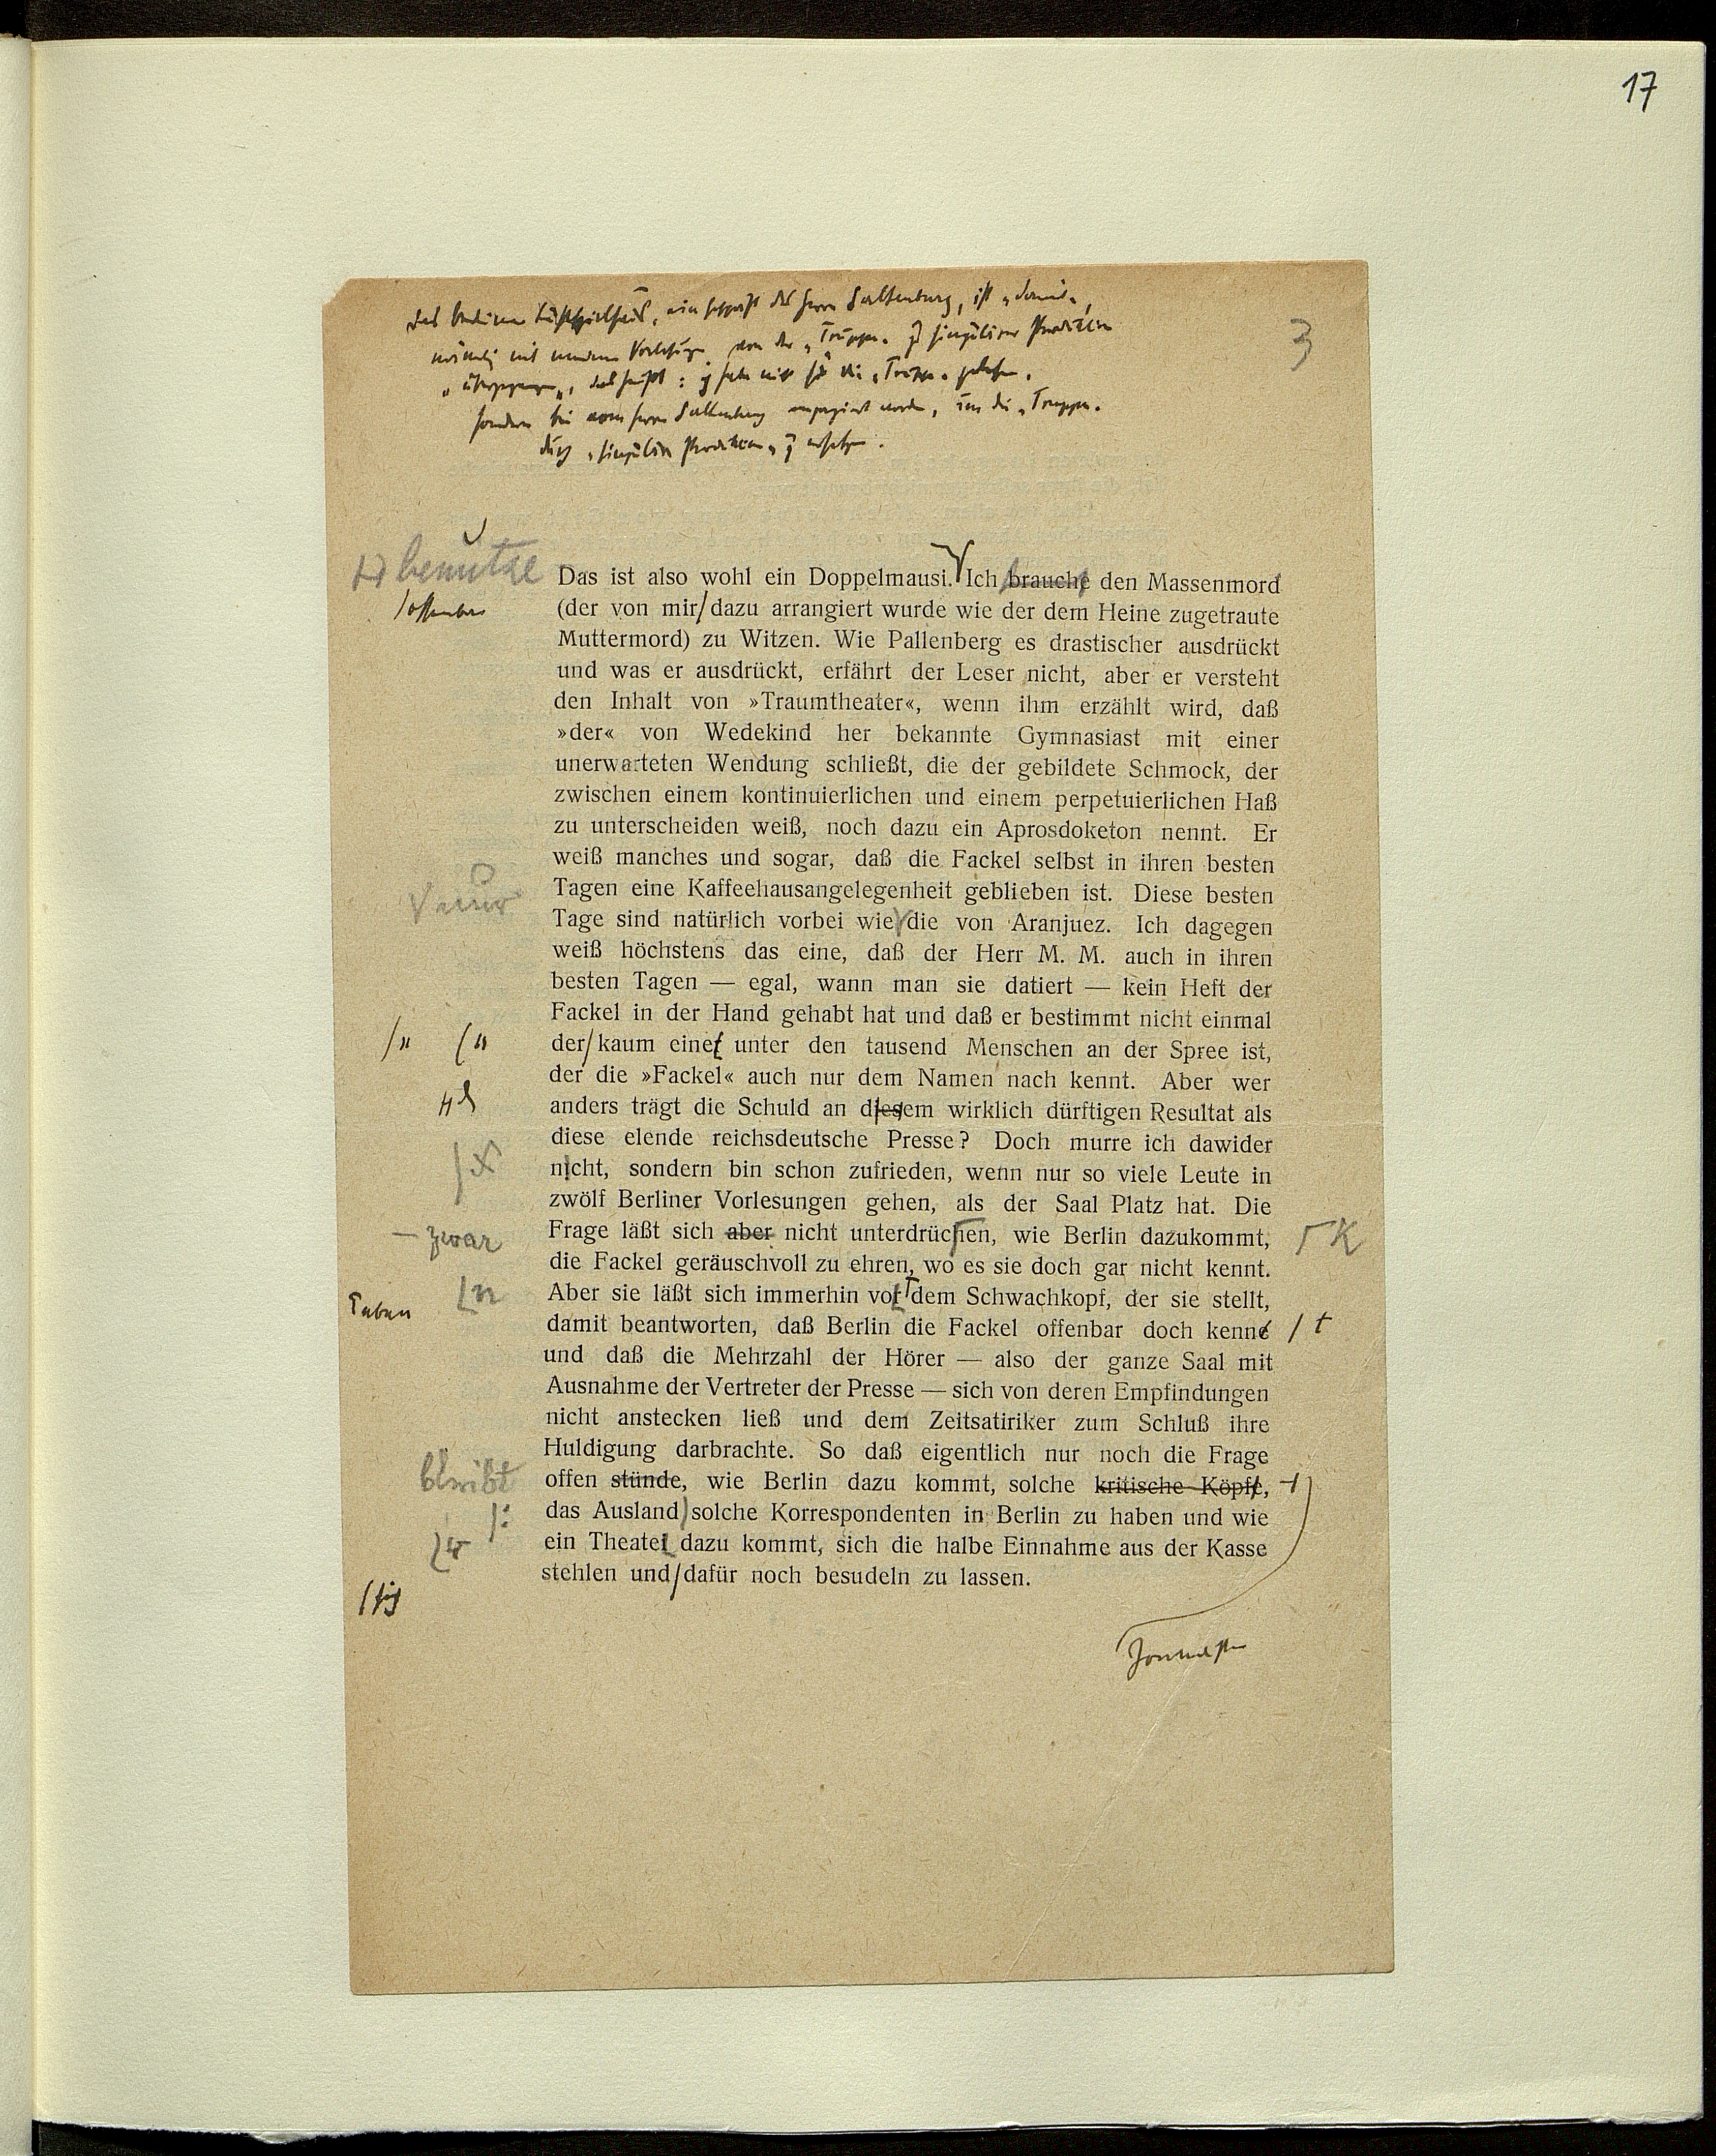 17
3
Das Berliner Lustspielhaus, ein des Herrn Saltenburg, ist „damit“,
nämlich mit meinen Vorlesungen, von der „Truppe“ zu singulären Produktionen
„übergegangen“, das heißt: ich habe nicht für die „Truppe“ gelesen,
sondern bin vom Herrn Saltenburg engagiert worden, um die „Truppe“
durch „singuläre Produktionen“ zu ersetzen.
benütze
Das ist also wohl ein Doppelmausi. Ich brauche den Massenmord
/offenbar
(der von mir/dazu arrangiert wurde wie der dem Heine zugetraute
Muttermord) zu Witzen. Wie Pallenberg es drastischer ausdrückt
und was er ausdrückt, erfährt der Leser nicht, aber er versteht
den Inhalt von »Traumtheater«, wenn ihm erzählt wird, daß
»der« von Wedekind her bekannte Gymnasiast mit einer
unerwarteten Wendung schließt, die der gebildete Schmock, der
zwischen einem kontinuierlichen und einem perpetuierlichen Haß
zu unterscheiden weiß, noch dazu ein Aprosdoketon nennt. Er
weiß manches und sogar, daß die Fackel selbst in ihren besten
Tagen eine Kaffeehausangelegenheit geblieben ist. Diese besten
Tage sind natürlich vorbei wie die von Aranjuez. Ich dagegen
weiß höchstens das eine, daß der Herr M. M. auch in ihren
besten Tagen — egal, wann man sie datiert — kein Heft der
Fackel in der Hand gehabt hat und daß er bestimmt nicht einmal
/„ /“
der/kaum einer unter den tausend Menschen an der Spree ist,
der die »Fackel« auch nur dem Namen nach kennt. Aber wer
anders trägt die Schuld an diesem wirklich dürftigen Resultat als
diese elende reichsdeutsche Presse? Doch murre ich dawider
nicht, sondern bin schon zufrieden, wenn nur so viele Leute in
zwölf Berliner Vorlesungen gehen, als der Saal Platz hat. Die
— zwar
Frage läßt sich aber nicht unterdrüchen, wie Berlin dazukommt,
K
die Fackel geräuschvoll zu ehren, wo es sie doch gar nicht kennt.
eben
n
Aber sie läßt sich immerhin vor dem Schwachkopf, der sie stellt,
damit beantworten, daß Berlin die Fackel offenbar doch kenne
/t
und daß die Mehrzahl der Hörer — also der ganze Saal mit
Ausnahme der Vertreter der Presse — sich von deren Empfindungen
nicht anstecken ließ und dem Zeitsatiriker zum Schluß ihre
Huldigung darbrachte. So daß eigentlich nur noch die Frage
bleibt
offen stünde, wie Berlin dazu kommt, solche kritische Köpfe,
/:
das Ausland solche Korrespondenten in Berlin zu haben und wie
r
ein Theater dazu kommt, sich die halbe Einnahme aus der Kasse
/sich
stehlen und/dafür noch besudeln zu lassen.
Journalisten